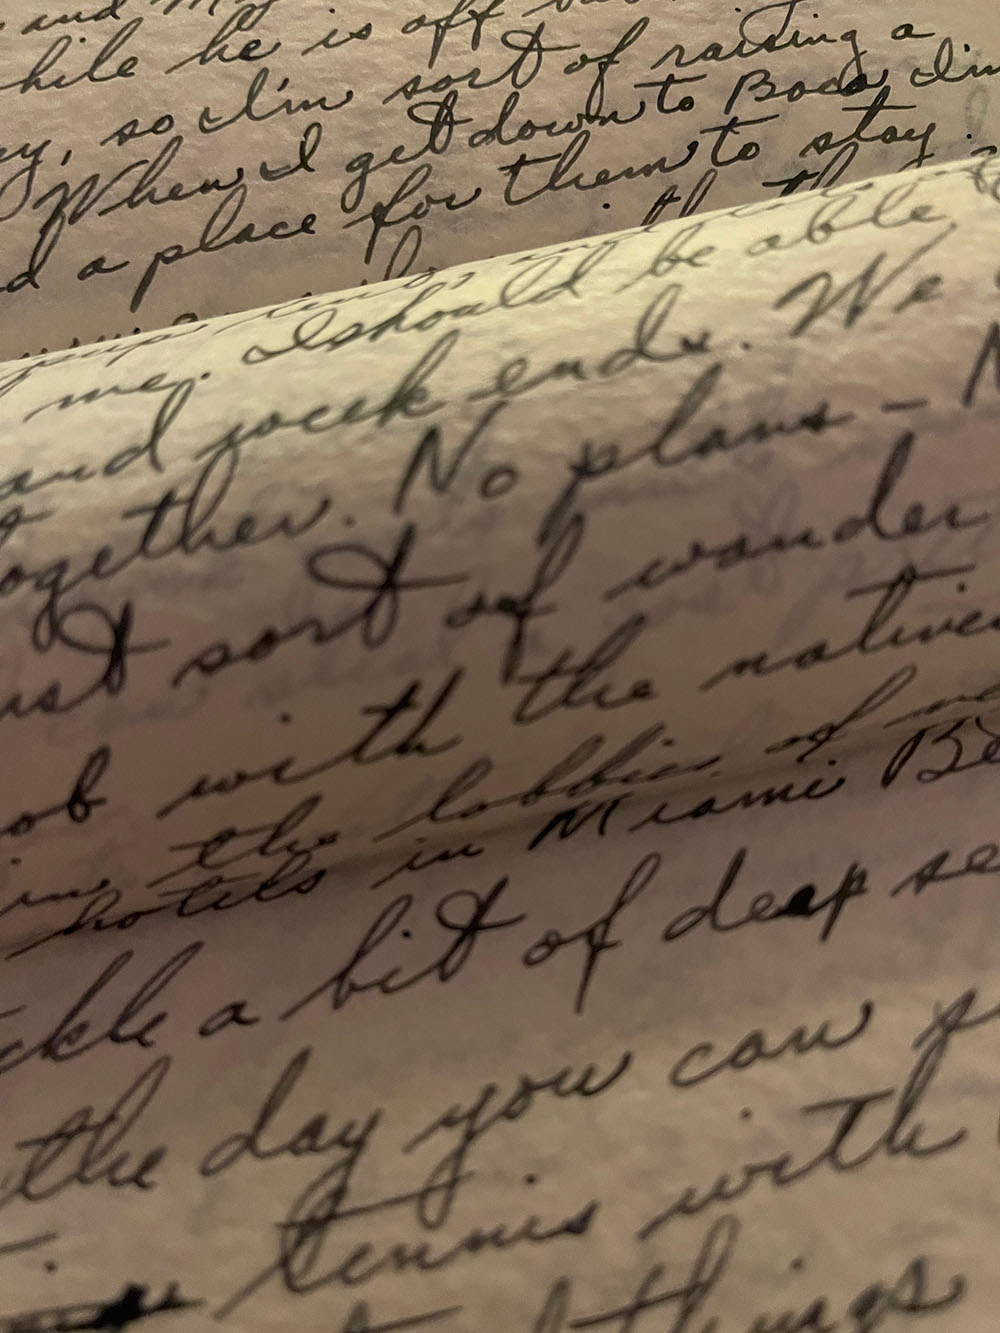 and My
while he is off
so I'm sort of raising a
When I get down to Boca I'm
a place for them to stay.
me. I should be able
and week ends. We
together. No plans -
just sort of wander
with the natives
in the lobbies of
hotels in Miami
a bit of deep
the day you can
tennis with
things